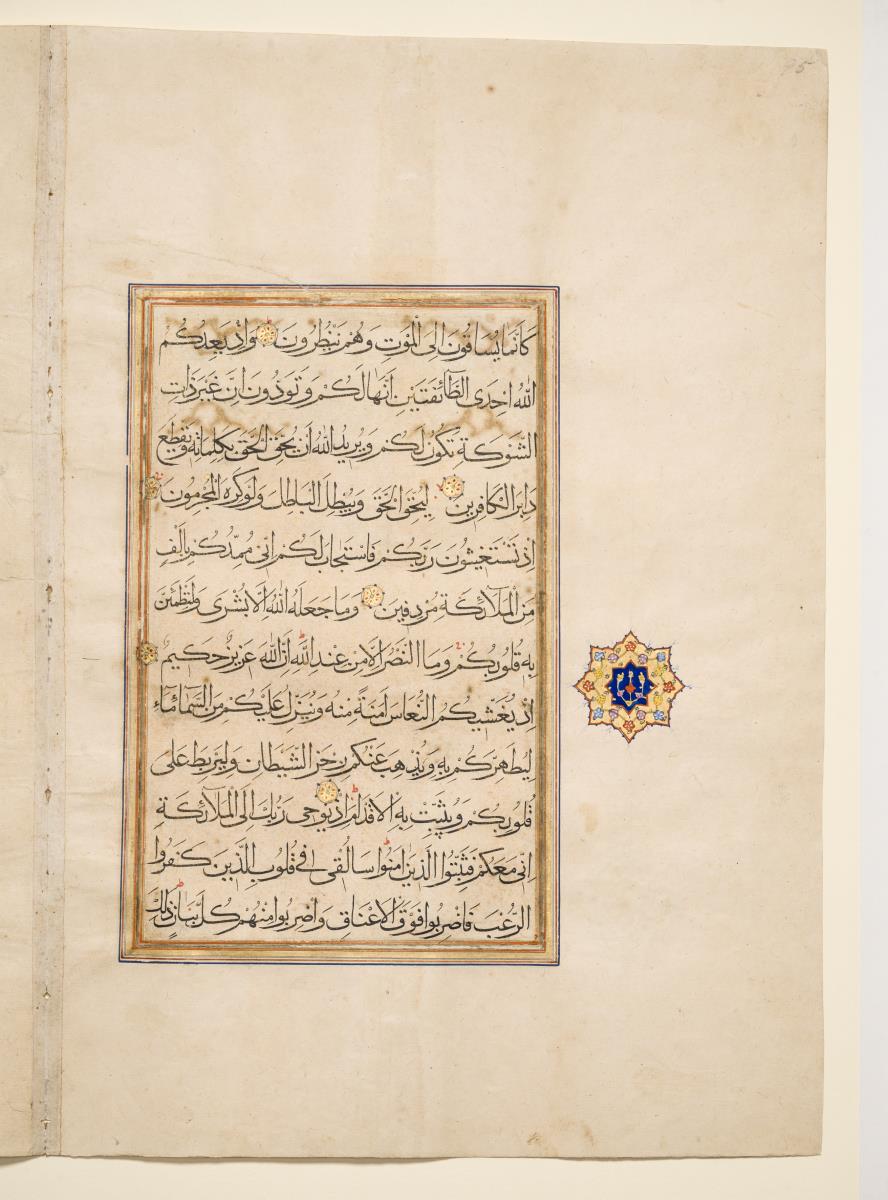 كَأَنَّمَا يُسَاقُونَ إِلَى الْمَوْتِ وَهُمْ يَنْظُرُونَ وَإِذْ يَعِدُكُمُ
اللهُ إِحْدَى الطَّآئِفَتَيْنِ أَنَّهَا لَكُمْ وَتَوَدُّونَ أَنَّ غَيْرَ ذَاتِ
الشَّوْكَةِ تَكُونُ لَكُمْ وَيُرِيدُ اللهُ أَنْ يُحِقَّ الْحَقَّ بِكَلِمَاتِهِ وَيَقْطَعَ
دَابِرَ الْكَافِرِينَ لِيُحِقَّ الْحَقَّ وَيُبْطِلَ الْبَاطِلَ وَلَوْ كَرِهَ الْمُجْرِمُونَ
إِذْ تَسْتَغِيثُونَ رَبَّكُمْ فَاسْتَجَابَ لَكُمْ أَنِّي مُمِدُّكُمْ بِأَلْفٍ
مِنَ الْمَلَآئِكَةِ مُرْدِفِينَ وَمَا جَعَلَهُ اللهُ إِلَّا بُشْرَى وَلِتَطْمَئِنَّ
بِهِ قُلُوبُكُمْ وَمَا النَّصْرُ إِلَّا مِنْ عِنْدِ اللهِ إِنَّ اللهَ عَزِيزٌ حَكِيمٌ
إِذْ يُغَشِّيكُمُ النُّعَاسَ أَمَنَةً مِنْهُ وَيُنَزِّلُ عَلَيْكُمْ مِنَ السَّمَآءِ مَآءً
لِيُطَهِّرَكُمْ بِهِ وَيُذْهِبَ عَنْكُمْ رِجْزَ الشَّيْطَانِ وَلِيَرْبِطَ عَلَى
قُلُوبِكُمْ وَيُثَبِّتَ بِهِ الْأَقْدَامَ إِذْ يُوحِي رَبُّكَ إِلَى الْمَلَآئِكَةِ
أَنِّي مَعَكُمْ فَثَبِّتُوا الَّذِينَ آمَنُوا سَأُلْقِي فِي قُلُوبِ الَّذِينَ كَفَرُوا
الرُّعْبَ فَاضْرِبُوا فَوْقَ الْأَعْنَاقِ وَاضْرِبُوا مِنْهُمْ كُلَّ بَنَانٍ ذَلِكَ